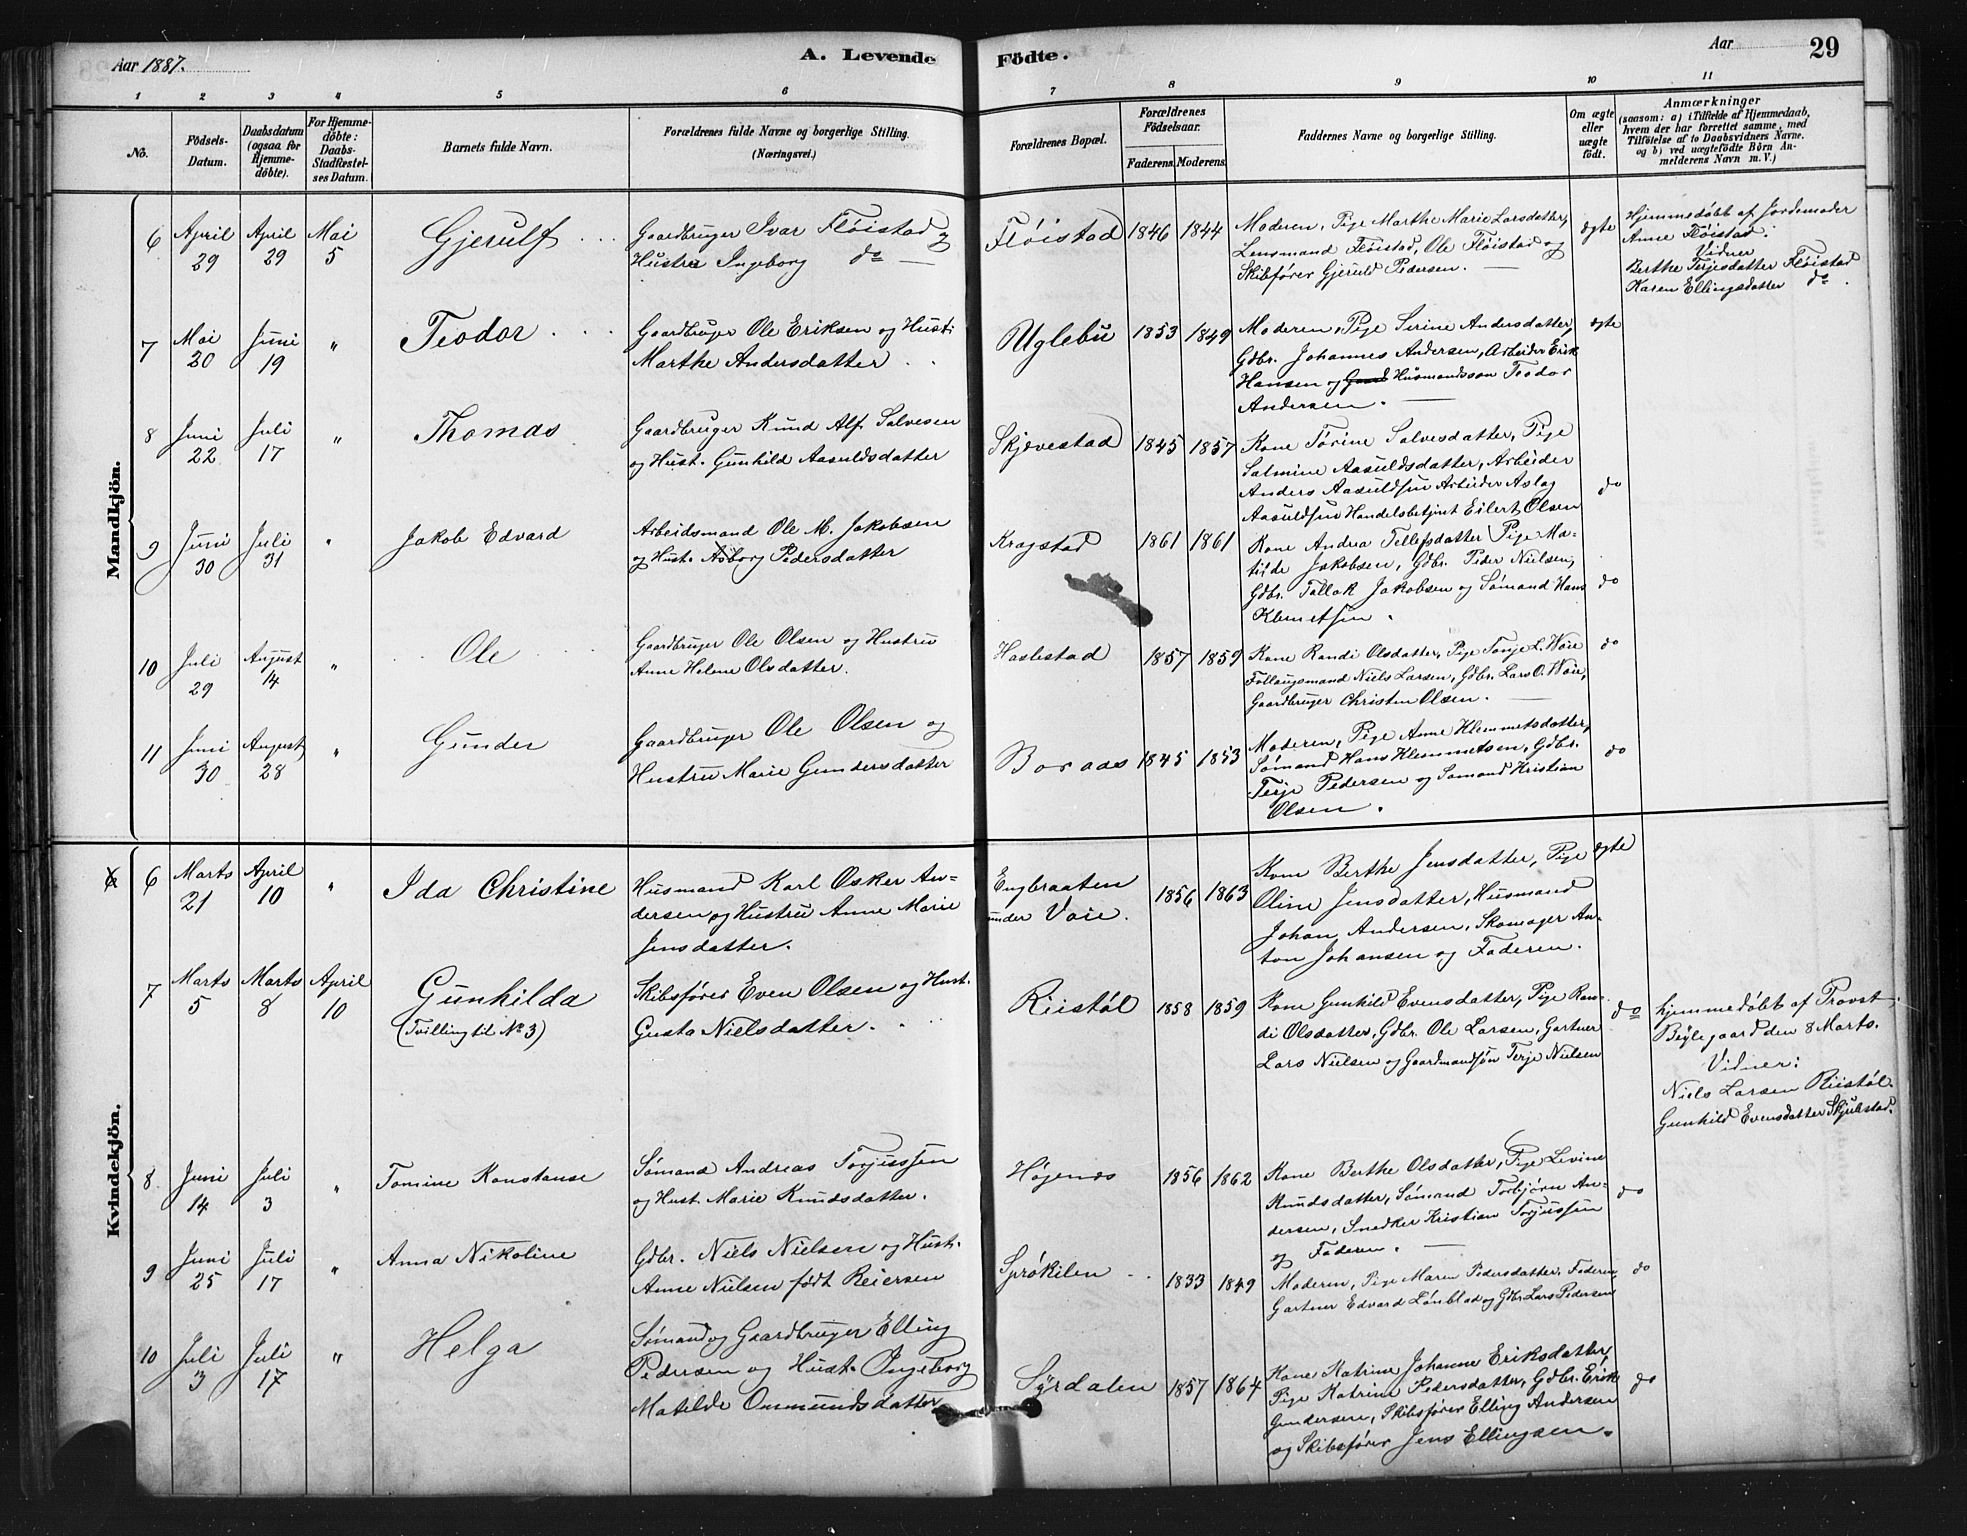 Aar 1887.
A. Levende Födte.
Aar
29
1 2 3 4 5 6 7 8 9 10 11
No.
Födsels-Datum.
Daabsdatum (ogsaa for Hjemme-döbte).
For Hjemme-döbte: Daabs-Stadfæstel-ses Datum.
Barnets fulde Navn.
Forældrenes fulde Navne og borgerlige Stilling. (Næringsvei.)
Forældrenes Bopæl.
Forældrenes Födselsaar.
Faderens. Moderens.
Faddernes Navne og borgerlige Stilling.
Om ægte eller uægte födt.
Anmærkninger
(saasom: a) i Tilfælde af Hjemmedaab,
hvem der har forrettet samme, med
Tilföielse af to Daabsvidners Navne.
og b) ved uægtefödte Börn An-
melderens Navn m. V.)
Mandkjön.
6 April 29 April 29 Mai 5
Gjerulf
Gaardbruger Ivar Fløistad og
Hustru Ingeborg do
Fløistad 1846 1844
Moderen, Pige Marthe Marie Larsdatter,
Lensmand Fløistad, Ole Fløistad og
Skibfører Gjeruld Pedersen.
ægte
Hjemmedøbt af Jordemoder
Anne Fløistad.
Vidner
Berthe Terjesdatter Fløistad
Karen Ellingsdatter do.
7 Mai 20 Juni 19 "
Teodor
Gaardbruger Ole Eriksen og Hust.
Marthe Andersdatter
Uglebu 1853 1849
Moderen, Pige Serine Andersdatter,
Gdbr. Johannes Andersen, Arbeider Erik
Hansen og Husmandssøn Teodor
Andersen.
ægte
8 Juni 22 Juli 17 "
Thomas
Gaardbruger Knud Alf. Salvesen
og Hust. Gunhild Aasuldsdatter
Skjævestad 1845 1857
Kone Tørine Salvesdatter, Pige
Salmine Aasuldsdatter, Arbeider
Anders Aasuldsen Arbeider Aslag
Aasuldsen Handelsbetjent Eilert Olsen
do
9 Juni 30 Juli 31 "
Jakob Edvard
Arbeidsmand Ole M. Jakobsen
og Hust. Asborg Pedersdatter
Kragstad 1861 1861
Kone Andrea Tellefsdatter Pige Ma-
tilde Jakobsen, Gdbr. Peder Nielsen,
Gdbr. Tallak Jakobsen og Sømand Hans
Klemetsen.
do
10 Juli 29 August 14 "
Ole
Gaardbruger Ole Olsen og Hustru
Anne Helene Olsdatter.
Haslestad 1857 1859
Kone Randi Olsdatter, Pige Tonje L. Woie
Follaugsmand Niels Larsen, Gdbr. Lars O. Woie,
Gaardbruger Christen Olsen.
do
11 Juni 30 August 28 "
Gunder
Gaardbruger Ole Olsen og
Hustru Marie Gundersdatter
Boraas 1845 1853
Moderen, Pige Anne Klemmetsdatter,
Sømand Hans Klemmetsen, Gdbr.
Terje Pedersen og Sømand Kristian
Olsen.
do
Kvindekjön.
6 Marts 21 April 10 "
Ida Christine
Husmand Karl Osker An-
dersen og Hustru Anne Marie
Jensdatter.
Engbraaten
under Vaie.
1856 1863
Kone Berthe Jensdatter, Pige
Oline Jensdatter, Husmand
Johan Andersen, Skomager An-
ton Johansen og Faderen.
ægte
7 Marts 5 Marts 8 April 10
Gunhilda
(Tvilling til No 3)
Skibsfører Even Olsen og Hust.
Gusta Nielsdatter.
Riistøl 1858 1859
Kone Gunhild Evensdatter, Pige Ran-
di Olsdatter, Gdbr. Ole Larsen, Gartner
Lars Nielsen og Gaardmandssøn Terje Nielsen
do
hjemmedøbt af Provst
Bøylegaard den 8 Marts.
Vidner:
Niels Larsen Riistøl.
Gunhild Evensdatter
8 Juni 14 Juli 3 "
Tomine Konstanse
Sømand Andreas Torjussen
og Hust. Marie Knudsdatter.
Høgenes 1856 1862
Kone Berthe Olsdatter, Pige Levine
Knudsdatter, Sømand Torbjørn An-
dersen, Snedker Kristian Torjussen
og Faderen.
do
9 Juni 25 Juli 17 "
Anna Nikoline
Gdbr. Niels Nielsen og Hust.
Anne Nielsen født Reiersen
Sprøkilen 1833 1849
Moderen, Pige Maren Pedersdatter, Faderen,
Gartner Edvard Lønblad og Gdbr. Lars Pedersen
do
10 Juli 3 Juli 17 "
Helga
Sømand og Gaardbruger Elling
Pedersen og Hust. Ingeborg
Matilde Ommundsdatter
Syrdalen 1857 1864
Kone Katrine Johanne Eriksdatter,
Pige Katrine Pedersdatter, Gdbr. Erik
Gundersen, Skibsfører Elling Andersen
og Skibsfører Jens Ellingsen.
do